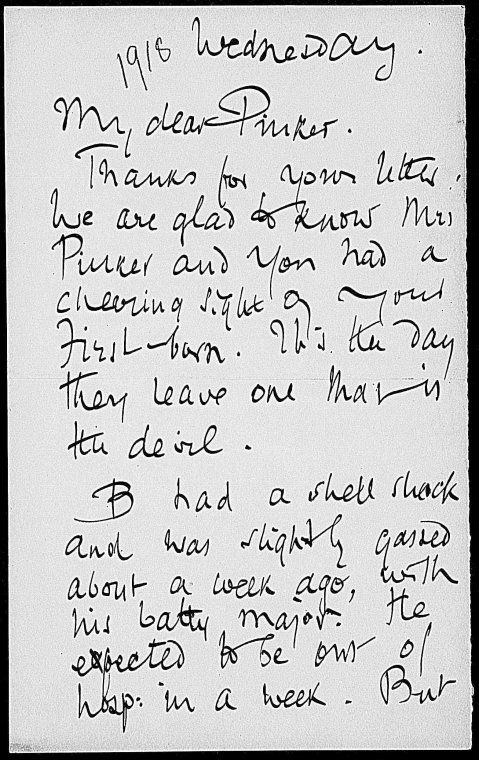 1918 Wednesday.
My dear Pinker.
Thanks for your letter.
We are glad to know Mrs
Pinker and you had a
cheering sight of your
First-born. It's the day
they leave one that is
the devil.
B had a shell shock
and was slightly gassed
about a week ago, with
his batty major. He
expected to be out of
hosp: in a week. But